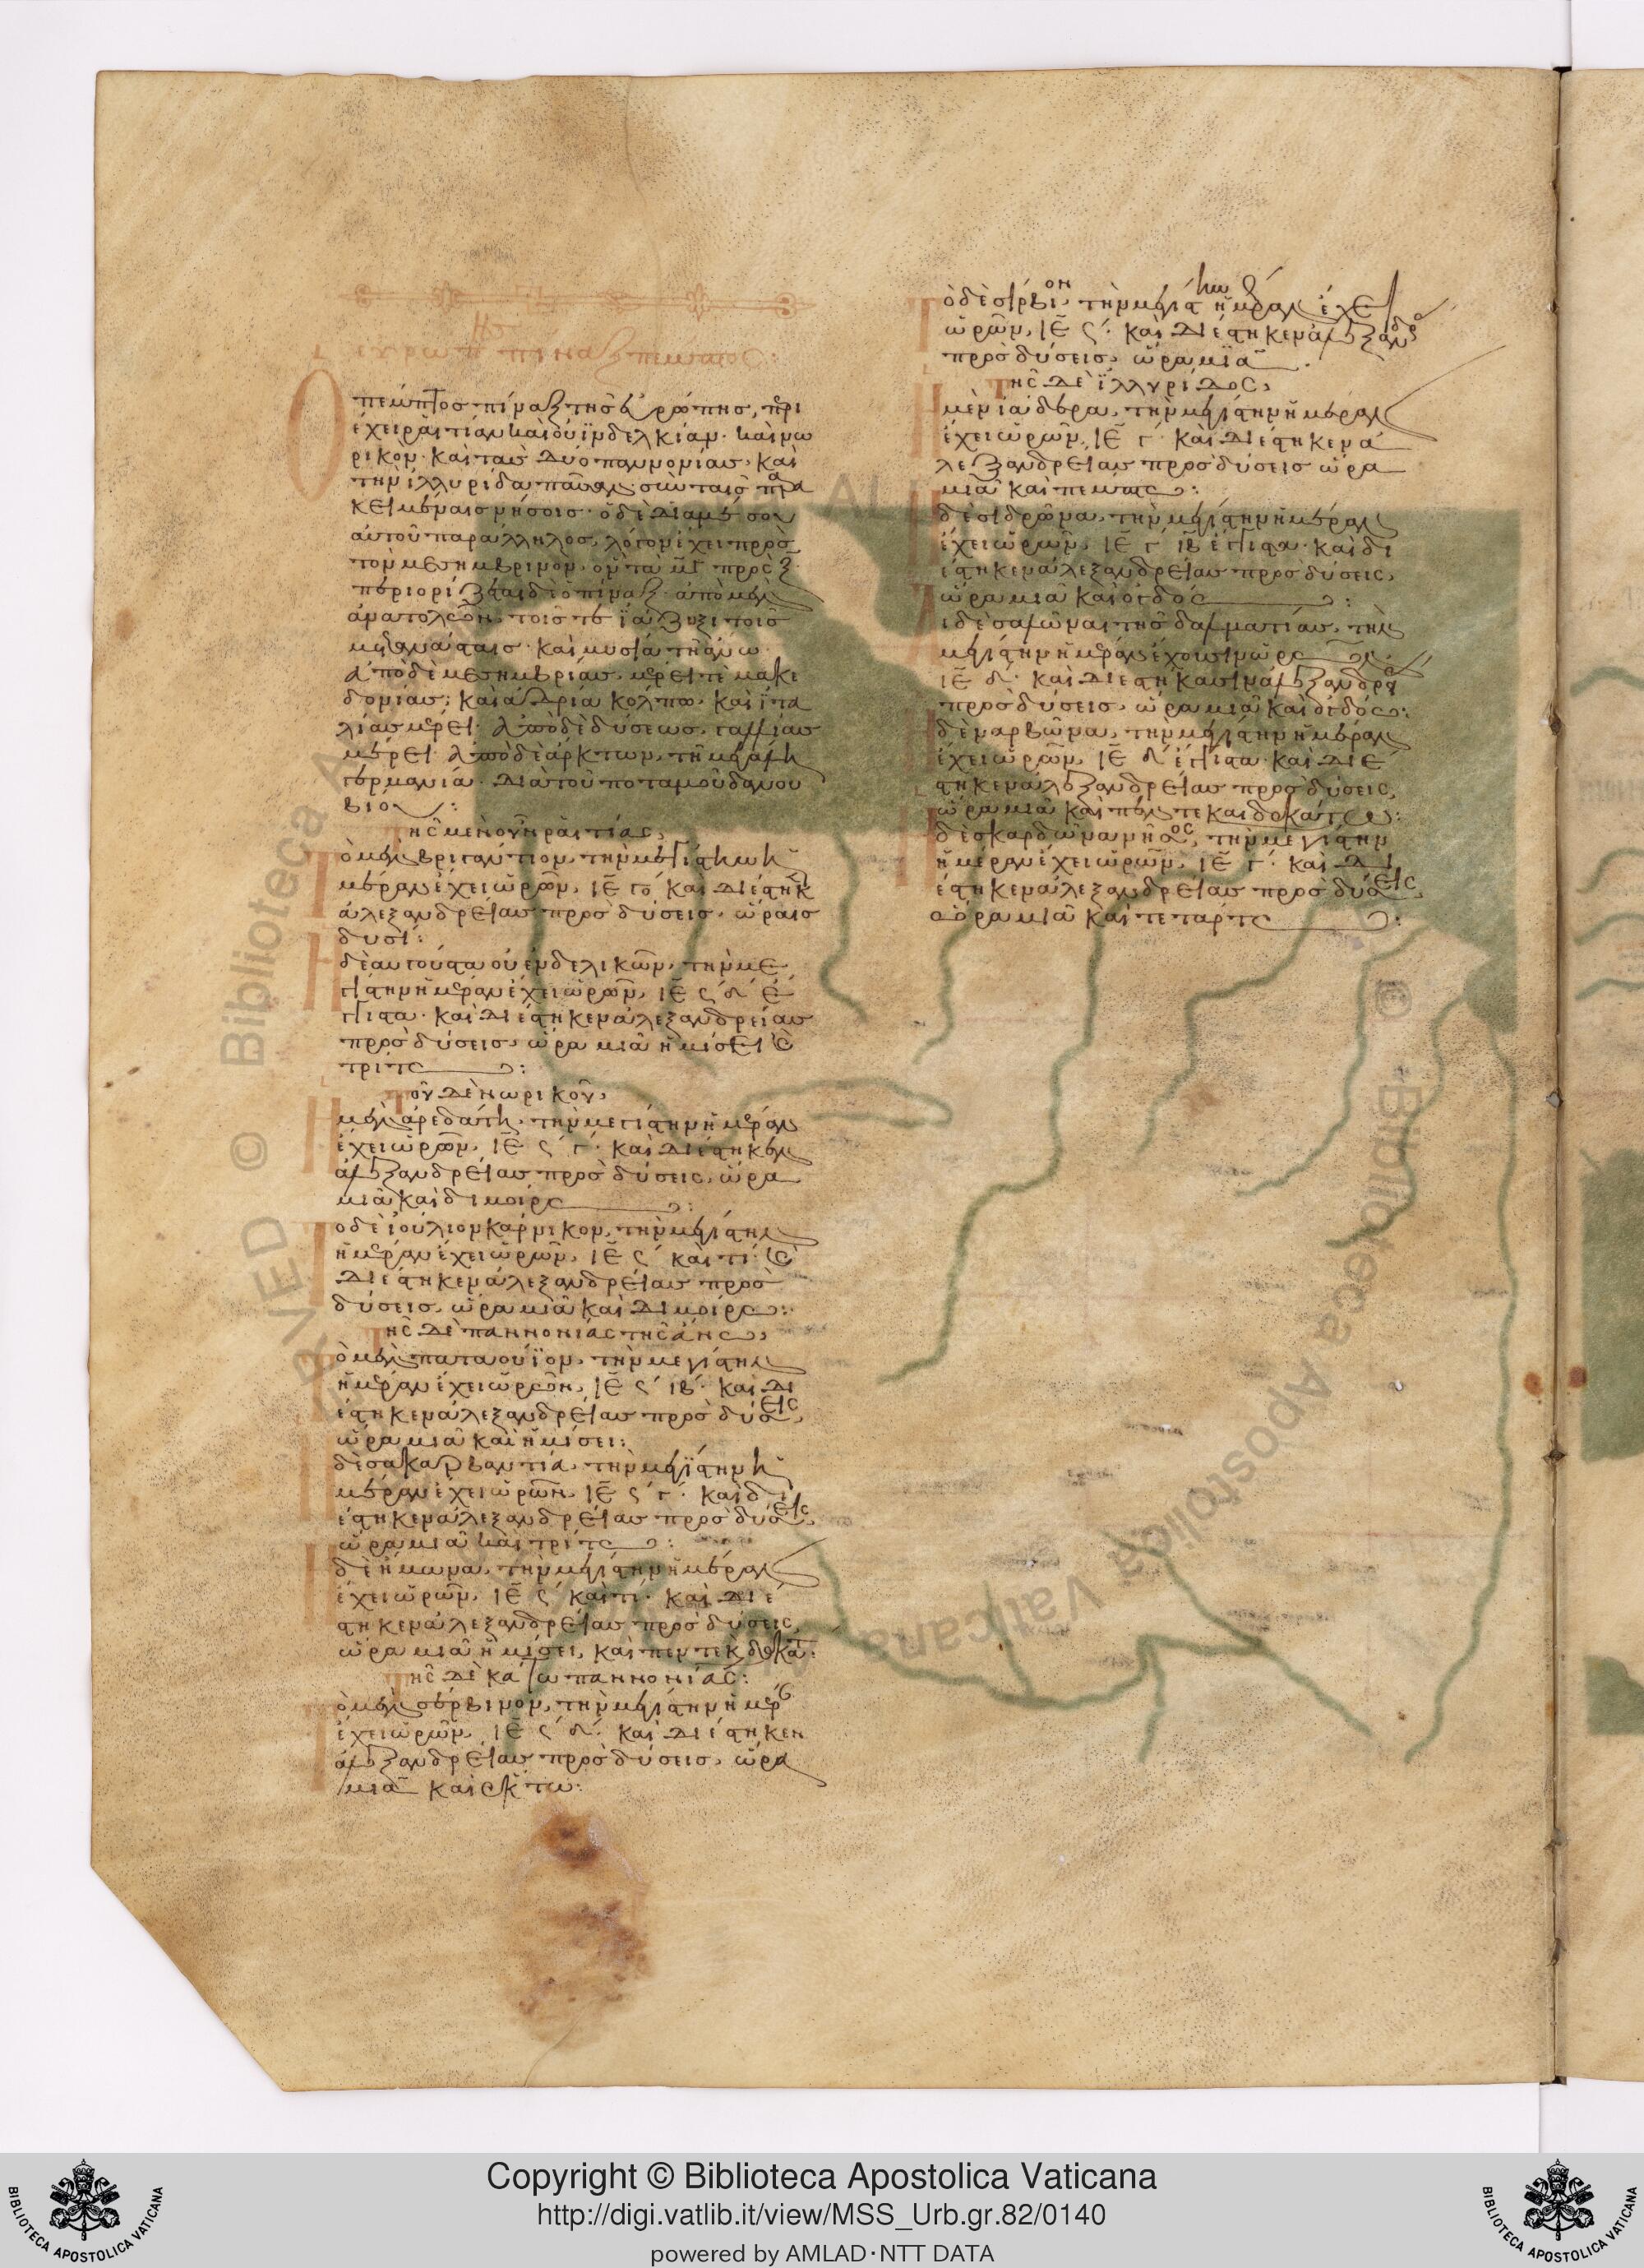 Εὐρώπης πίναξ πέμπτος:
Ὁ πέμπτος πίναξ τῆς εὐρώπης, περι
έχει ῥαιτίαν καὶ οὐϊνδελκίαν· καὶ νω
ρικὸν· καὶ τὰς δύο παννονίας· καὶ
τὴν ἰλλυρίδα πᾶσαν· σὺν ταῖς παρα
κειμέναις νήσοις· ὁ δὲ διαμέσου
αὐτοῦ παράλληλος, λόγον ἔχει πρὸς
τὸν μεσημβρινὸν, ὃν τὰ μγ πρὸς ξ·
περιορίζεται δὲ ὁ πίναξ· ἀπὸ μὲν
ἀνατολῶν, τοῖς τε ϊάζυξι τοῖς
μετανάσταις· καὶ μυσία τῇ ἄνω·
ἀπὸ δὲ μεσημβρίας, μέρει τὲ μακε
δονίας· καὶ ἀδρία κόλπω· καὶ ϊτα
λίας μέρει· ἀπὸ δὲ δύσεως, γαλλίας
μέρει· ἀπὸ δὲ ἄρκτων, τῆ μεγάλη
γερμανία· διὰ τοῦ ποταμοῦ δανου
βίου:
Τῆς μὲν οὖν ῥαιτίας,
ὁ μὲν βριγάντιον, τὴν μεγίστην ἡ
μέραν ἔχει ὡρῶν, ιε γο καὶ διέστηκ
ἀλεξανδρείας πρὸς δύσεις, ὥραις
δυσί:
Ἡ δὲ αὐγούστα οὐινδελικῶν, τὴν με
γίστην ἡμέραν ἔχει ὡρῶν, ιε ς δ ἔγ
γιστα· καὶ διέστηκεν ἀλεξανδρείας
πρὸς δύσεις, ὥρα μιᾶ ἡμίσει καὶ
τρίτω:
Τοῦ δὲ νωρικοῦ,
ἡ μὲν ἀρεδάτη, τὴν μεγίστην ἡμέραν
ἔχει ὡρῶν, ιε ς γ· καὶ διέστηκεν
ἀλεξανδρείας πρὸς δύσεις, ὥρα
μιᾶ καὶ διμοίρω:
Τὸ δὲ ἰούλιον κάρνικον, τὴν μεγίστην
ἡμέραν ἔχει ὡρῶν, ιε ς καὶ γι· καὶ
διέστηκεν ἀλεξανδρείας πρὸς
δύσεις, ὥρα μιᾶ καὶ διμοίρω:
Τῆς δὲ παννονίας τῆς ἄνω,
ὁ μὲν παταουΐον, τὴν μεγίστην
ἡμέραν ἔχει ὡρῶν, ιε ς ιβ· καὶ δι
έστηκεν ἀλεξανδρείας πρὸς δύσεις,
ὥρα μιᾶ καὶ ἡμίσει:
Ἡ δὲ σκαρβαντία, τὴν μεγίστην ἡ
μέραν ἔχει ὡρῶν, ιε ς γ· καὶ δι
έστηκεν ἀλεξανδρείας πρὸς δύσεις,
ὥρα μιᾶ καὶ τρίτω:
Ἡ δὲ ἤμωνα, τὴν μεγίστην ἡμέραν
ἔχει ὡρῶν, ιε ς καὶ γι· καὶ διέ
στηκεν ἀλεξανδρείας πρὸς δύσεις,
ὥρα μιᾶ ἡμίσει, καὶ πεντεκδεκάτ:
Τῆς δὲ κάτω παννονίας:
ὁ μὲν σέρβινον, τὴν μεγίστην ἡμέρ
ἔχει ὡρῶν, ιε ς δ· καὶ διέστηκεν
ἀλεξανδρείας πρὸς δύσεις, ὥρα
μιᾶ καὶ ὀκτω:
Τὸ δὲ σίρβιον, τὴν μεγίστην ἡμέραν ἔχει
ὡρῶν, ιε ς· καὶ διέστηκεν ἀλεξανδ
πρὸς δύσεις, ὥρα μιᾶ.
Τῆς δὲ ϊλλυρίδος,
Ἡ μὲν ἰάδερα, τὴν μεγίστην ἡμέραν
ἔχει ὡρῶν, ιε γ· καὶ διέστηκεν ἀ
λεξανδρείας πρὸς δύσεις ὥρα
μιᾶ καὶ πέμπτω:
Ἡ δὲ σίδρωνα, τὴν μεγίστην ἡμέραν
ἔχει ὡρῶν, ιε γ ιβ ἔγγιστα· καὶ δι
έστηκεν ἀλεξανδρείας πρὸς δύσεις,
ὥρα μιᾶ καὶ ὀγδόω:
Αἱ δὲ σαλῶναι τῆς δαλματίας, τὴν
μεγίστην ἡμέραν ἔχουσιν ὡρῶν
ιε δ· καὶ διεστήκασιν ἀλεξανδρεί
πρὸς δύσεις, ὥρα μιᾶ καὶ ὀγδόω:
Ἡ δὲ ναρβῶνα, τὴν μεγίστην ἡμέραν
ἔχει ὡρῶν, ιε δ ἔγγιστα· καὶ διέ
στηκεν ἀλεξανδρείας πρὸς δύσεις,
ὥρα μιᾶ καὶ πέντε καιδεκάτω:
Ἡ δὲ σκαρδῶνα νῆσος, τὴν μεγίστην
ἡμέραν ἔχει ὡρῶν, ιε γ· καὶ δι
έστηκεν ἀλεξανδρείας πρὸς δύσεις,
ὥρα μιᾶ καὶ τετάρτω:
Copyright © Biblioteca Apostolica Vaticana
http://digi.vatlib.it/view/MSS_Urb.gr.82/0140
powered by AMLAD·NTT DATA
BIBLIOTECA APOSTOLICA VATICANA
BIBLIOTECA APOSTOLICA VATICANA